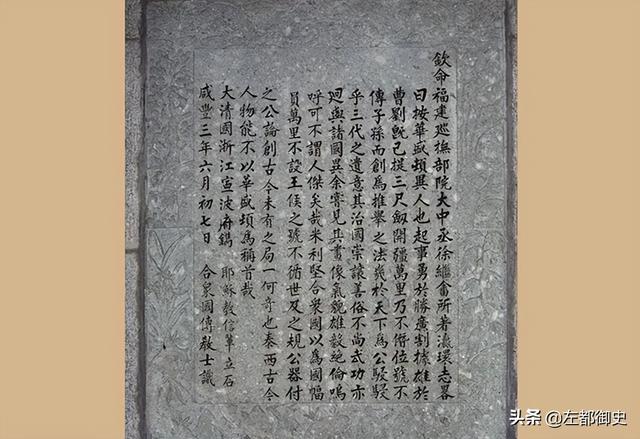 欽命福建巡撫部院大中丞徐繼畬所著瀛環志畧
曰按華盛頓異人也起事勇於勝廣割據雄於
曹劉既已提三尺劒開疆萬里乃不僭位號不
傳子孫而創為推舉之法幾於天下為公駸駸
乎三代之遺意其治國崇讓善俗不尚武功亦
迥與諸國異余嘗見其畫像氣貌雄毅絕倫嗚
呼可不謂人傑矣哉米利堅合衆國以為國幅
員萬里不設王侯之號不循世及之規公器付
之公論創古今未有之局一何奇也泰西古今
人物能不以華盛頓為稱首哉
大清國浙江寧波府鐫 耶穌教信輩立石
咸豐三年六月初七日 合衆國傳教士識
头条 @左都御史